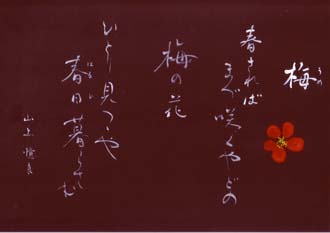 梅
うめ
春されば
まづ咲くやどの
梅の花
ひとり見つつや
春日暮らさむ
はるひ
山上憶良